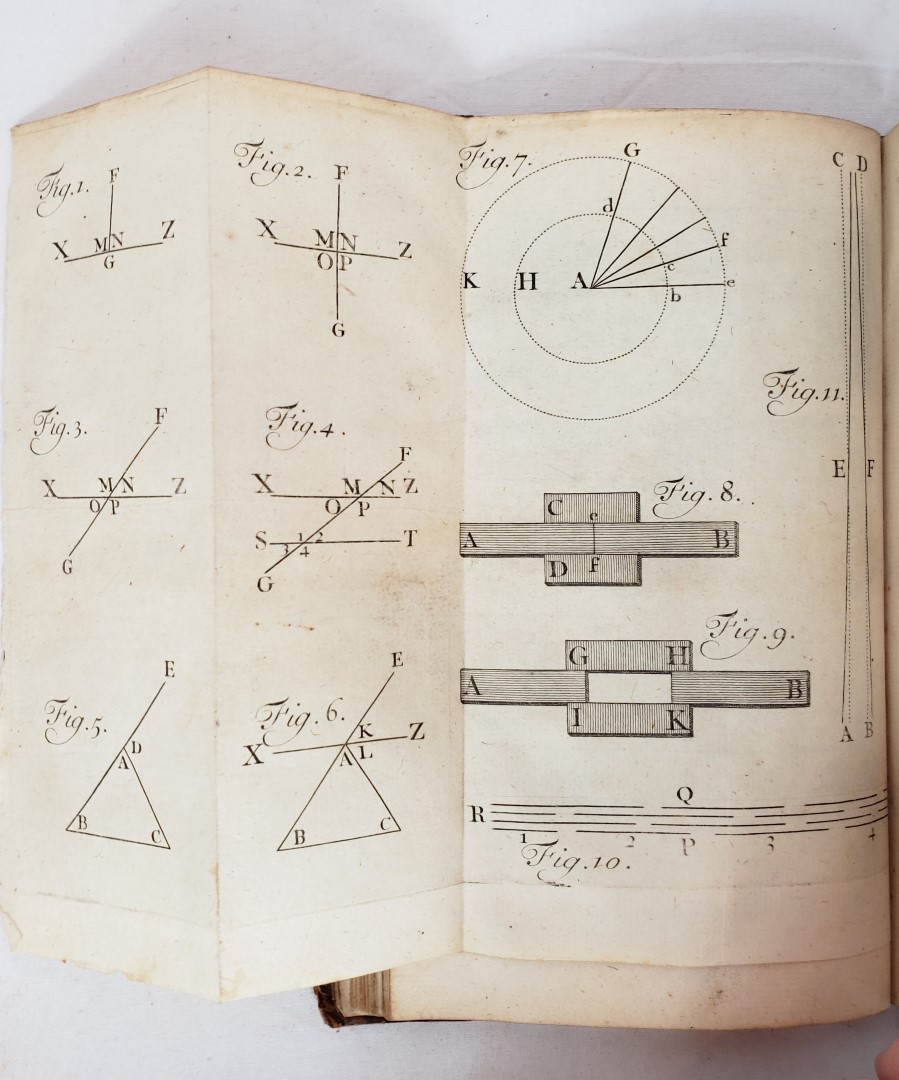 Fig.1.
F
X M N Z
G
Fig.2.
F
X M N Z
O P
G
Fig.3.
F
X M N Z
O P
G
Fig.4.
F
X M N Z
O P
S 1 2 T
3 4
G
Fig.5.
E
D
A
B C
Fig.6.
E
K Z
X A L
B C
Fig.7.
G
d
f
c
K H A b e
Fig.8.
C e
A B
D f
Fig.9.
G H
A B
I K
Q
R
1 2 P 3 4
Fig.10.
C D
Fig.11.
E F
A B